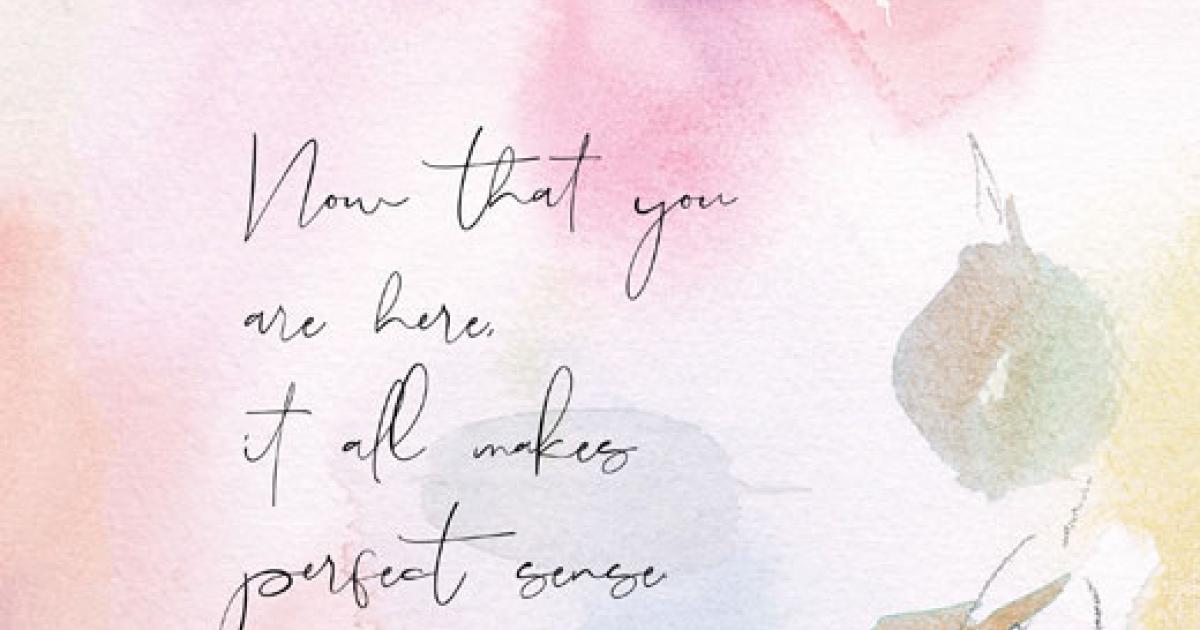 Now that you
are here,
it all makes
perfect sense.